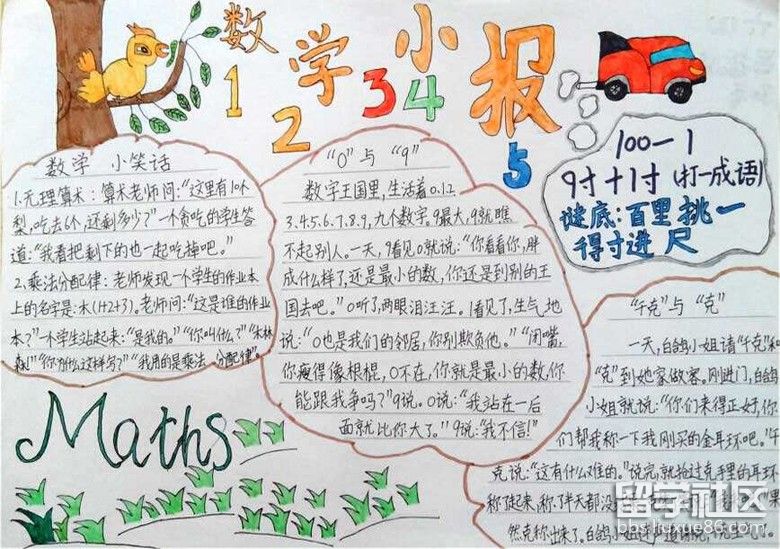 数学小报
1 2 3 4 5
数学 小笑话
1.无理算术:算术老师问:“这里有10个
梨,吃去6个,还剩多少?”一个贪吃的学生答
道:“我看把剩下的也一起吃掉吧。”
2、乘法分配律:老师发现一个学生的作业本
上的名字是:木(1+2+3)。老师问:“这是谁的作业
本?”一个学生站起来:“是我的。”“你叫什么?”“木林
森!”“你为什么这样写?”“我用的是乘法 分配律”。
Maths
“0”与“9”
数字王国里,生活着0.1.2.
3.4.5.6.7.8.9,九个数字。9最大,9就瞧
不起别人。一天,9看见0就说:“你看看你,胖
成什么样了,还是最小的数,你还是到别的王
国去吧。”0听了,两眼泪汪汪。1看见了,生气地
说:“0也是我们的邻居,你别欺负他。”“闭嘴,
你瘦得像根棍,0不在,你就是最小的数,你
能跟我争吗?”9说。0说:“我站在一后
面就比你大了。”9说:“我不信!”
100—1
9寸+1寸(打一成语)
谜底:百里挑一
得寸进尺
“千克”与“克”
一天,白鸽小姐请“千克”和
“克”到她家做客。刚进门,白鸽
小姐就说:“你们来得正好,你
们帮我称一下我刚买的金耳环吧。”千
克说:“这有什么难的。”说完,就抢过克手里的耳环
称了起来,称了半天都没
然克称出来了。白鸽小姐连忙道谢
留学社区
bbs.liuxue86.com